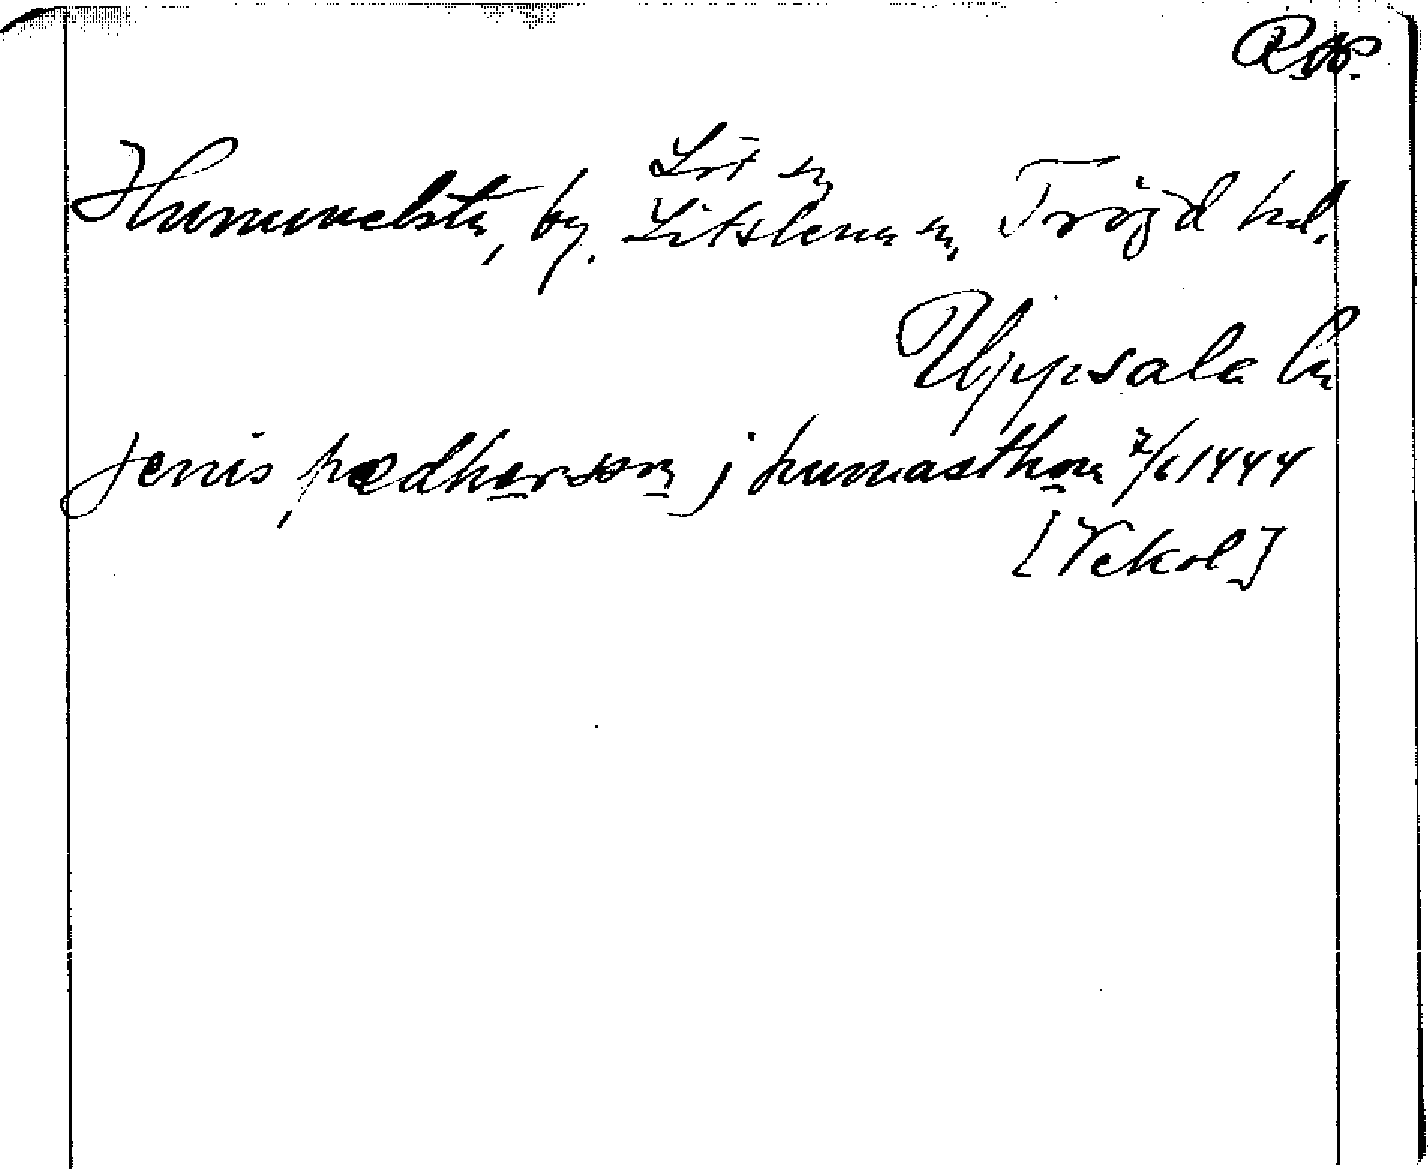 RAP.
Lit sn
Hummelsta, by. Litslena sn, Trögd hd.
Uppsala län
jenis pædhersson j humasthom 7/6 1444
[Vckol]